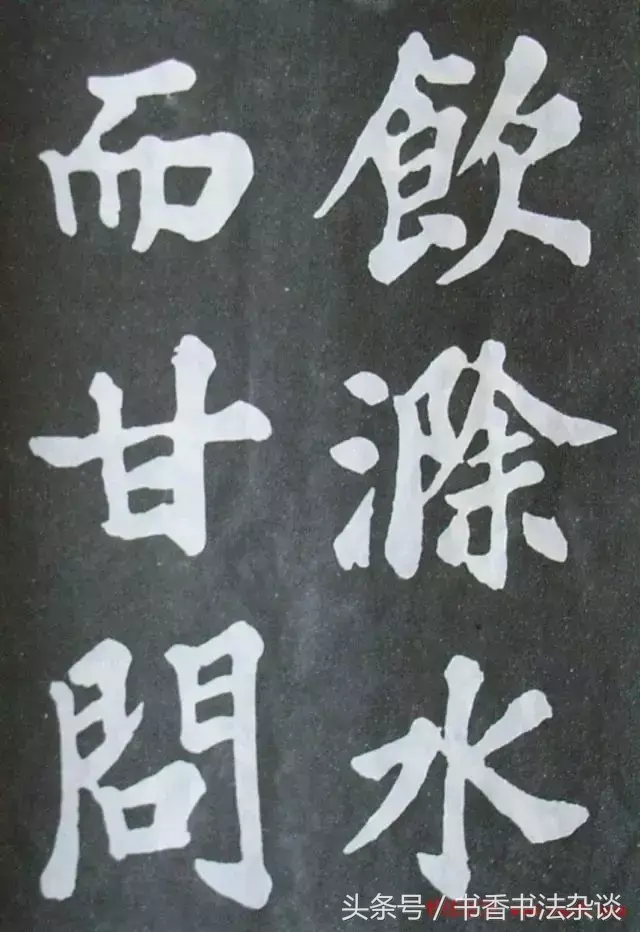 飲滁水
而甘問
头条号／书香书法杂谈